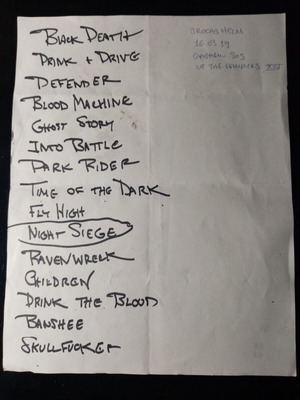 Black Death
Drink + Drive
Defender
Blood Machine
Ghost Story
Into Battle
Dark Rider
Time of the Dark
Fly High
Night Siege
Ravenwreck
Children
Drink the Blood
Banshee
Skullfucker
BROCAS HELM
16 03 19
UP THE HAMMERS